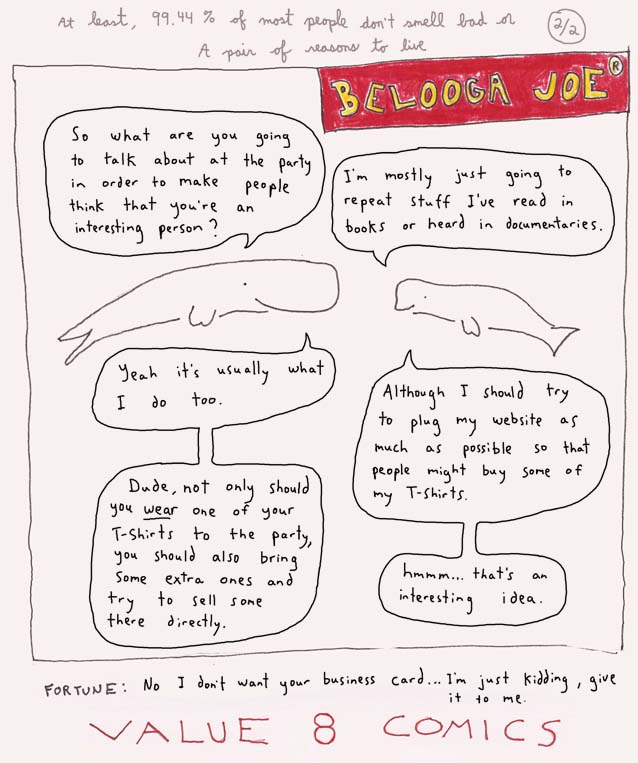 At least, 99.44 % of most people don't smell bad or
A pair of reasons to live
2/2
BELOOGA JOE®
So what are you going
to talk about at the party
in order to make people
think that you're an
interesting person?
I'm mostly just going to
repeat stuff I've read in
books or heard in documentaries.
Yeah it's usually what
I do too.
Although I should try
to plug my website as
much as possible so that
people might buy some of
my T-Shirts.
Dude, not only should
you wear one of your
T-Shirts to the party,
you should also bring
some extra ones and
try to sell some
there directly.
hmmm... that's an
interesting idea.
FORTUNE: No I don't want your business card... I'm just kidding, give
it to me.
VALUE 8 COMICS